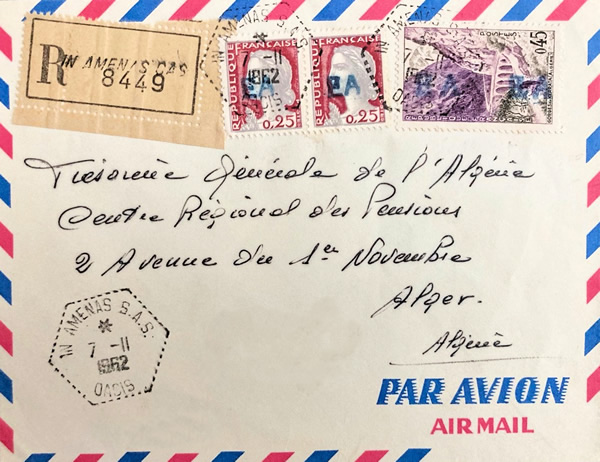 R IN AMENAS SAS
8449
IN AMENAS S.A.S.
7 -11
1962
OASIS
REPUBLIQUE FRANÇAISE
EA
0,25
REPUBLIQUE FRANÇAISE
EA
0,25
7 -11
1962
OASIS
POSTES
0,45
EA
EA
Trésorerie Générale de l'Algérie
Centre Régional des Pensions
2 Avenue du 1er Novembre
Alger.
Algérie
IN AMENAS S.A.S.
7 -11
1962
OASIS
PAR AVION
AIR MAIL